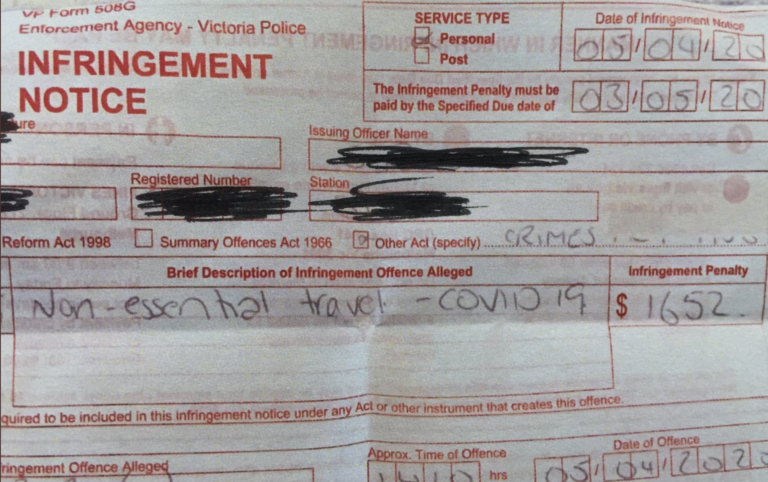 VP Form 508G
Enforcement Agency - Victoria Police
INFRINGEMENT
NOTICE
SERVICE TYPE
Personal
Post
Date of Infringement Notice
05/04/20
The Infringement Penalty must be
paid by the Specified Due date of
03/05/20
ure
Issuing Officer Name
Registered Number
Station
Reform Act 1998
Summary Offences Act 1966
Other Act (specify) CRIMES
Brief Description of Infringement Offence Alleged
Infringement Penalty
Non-essential travel - COVID 19
$ 1652.
quired to be included in this infringement notice under any Act or other instrument that creates this offence.
ringement Offence Alleged
Approx. Time of Offence
hrs
Date of Offence
05/04/2020